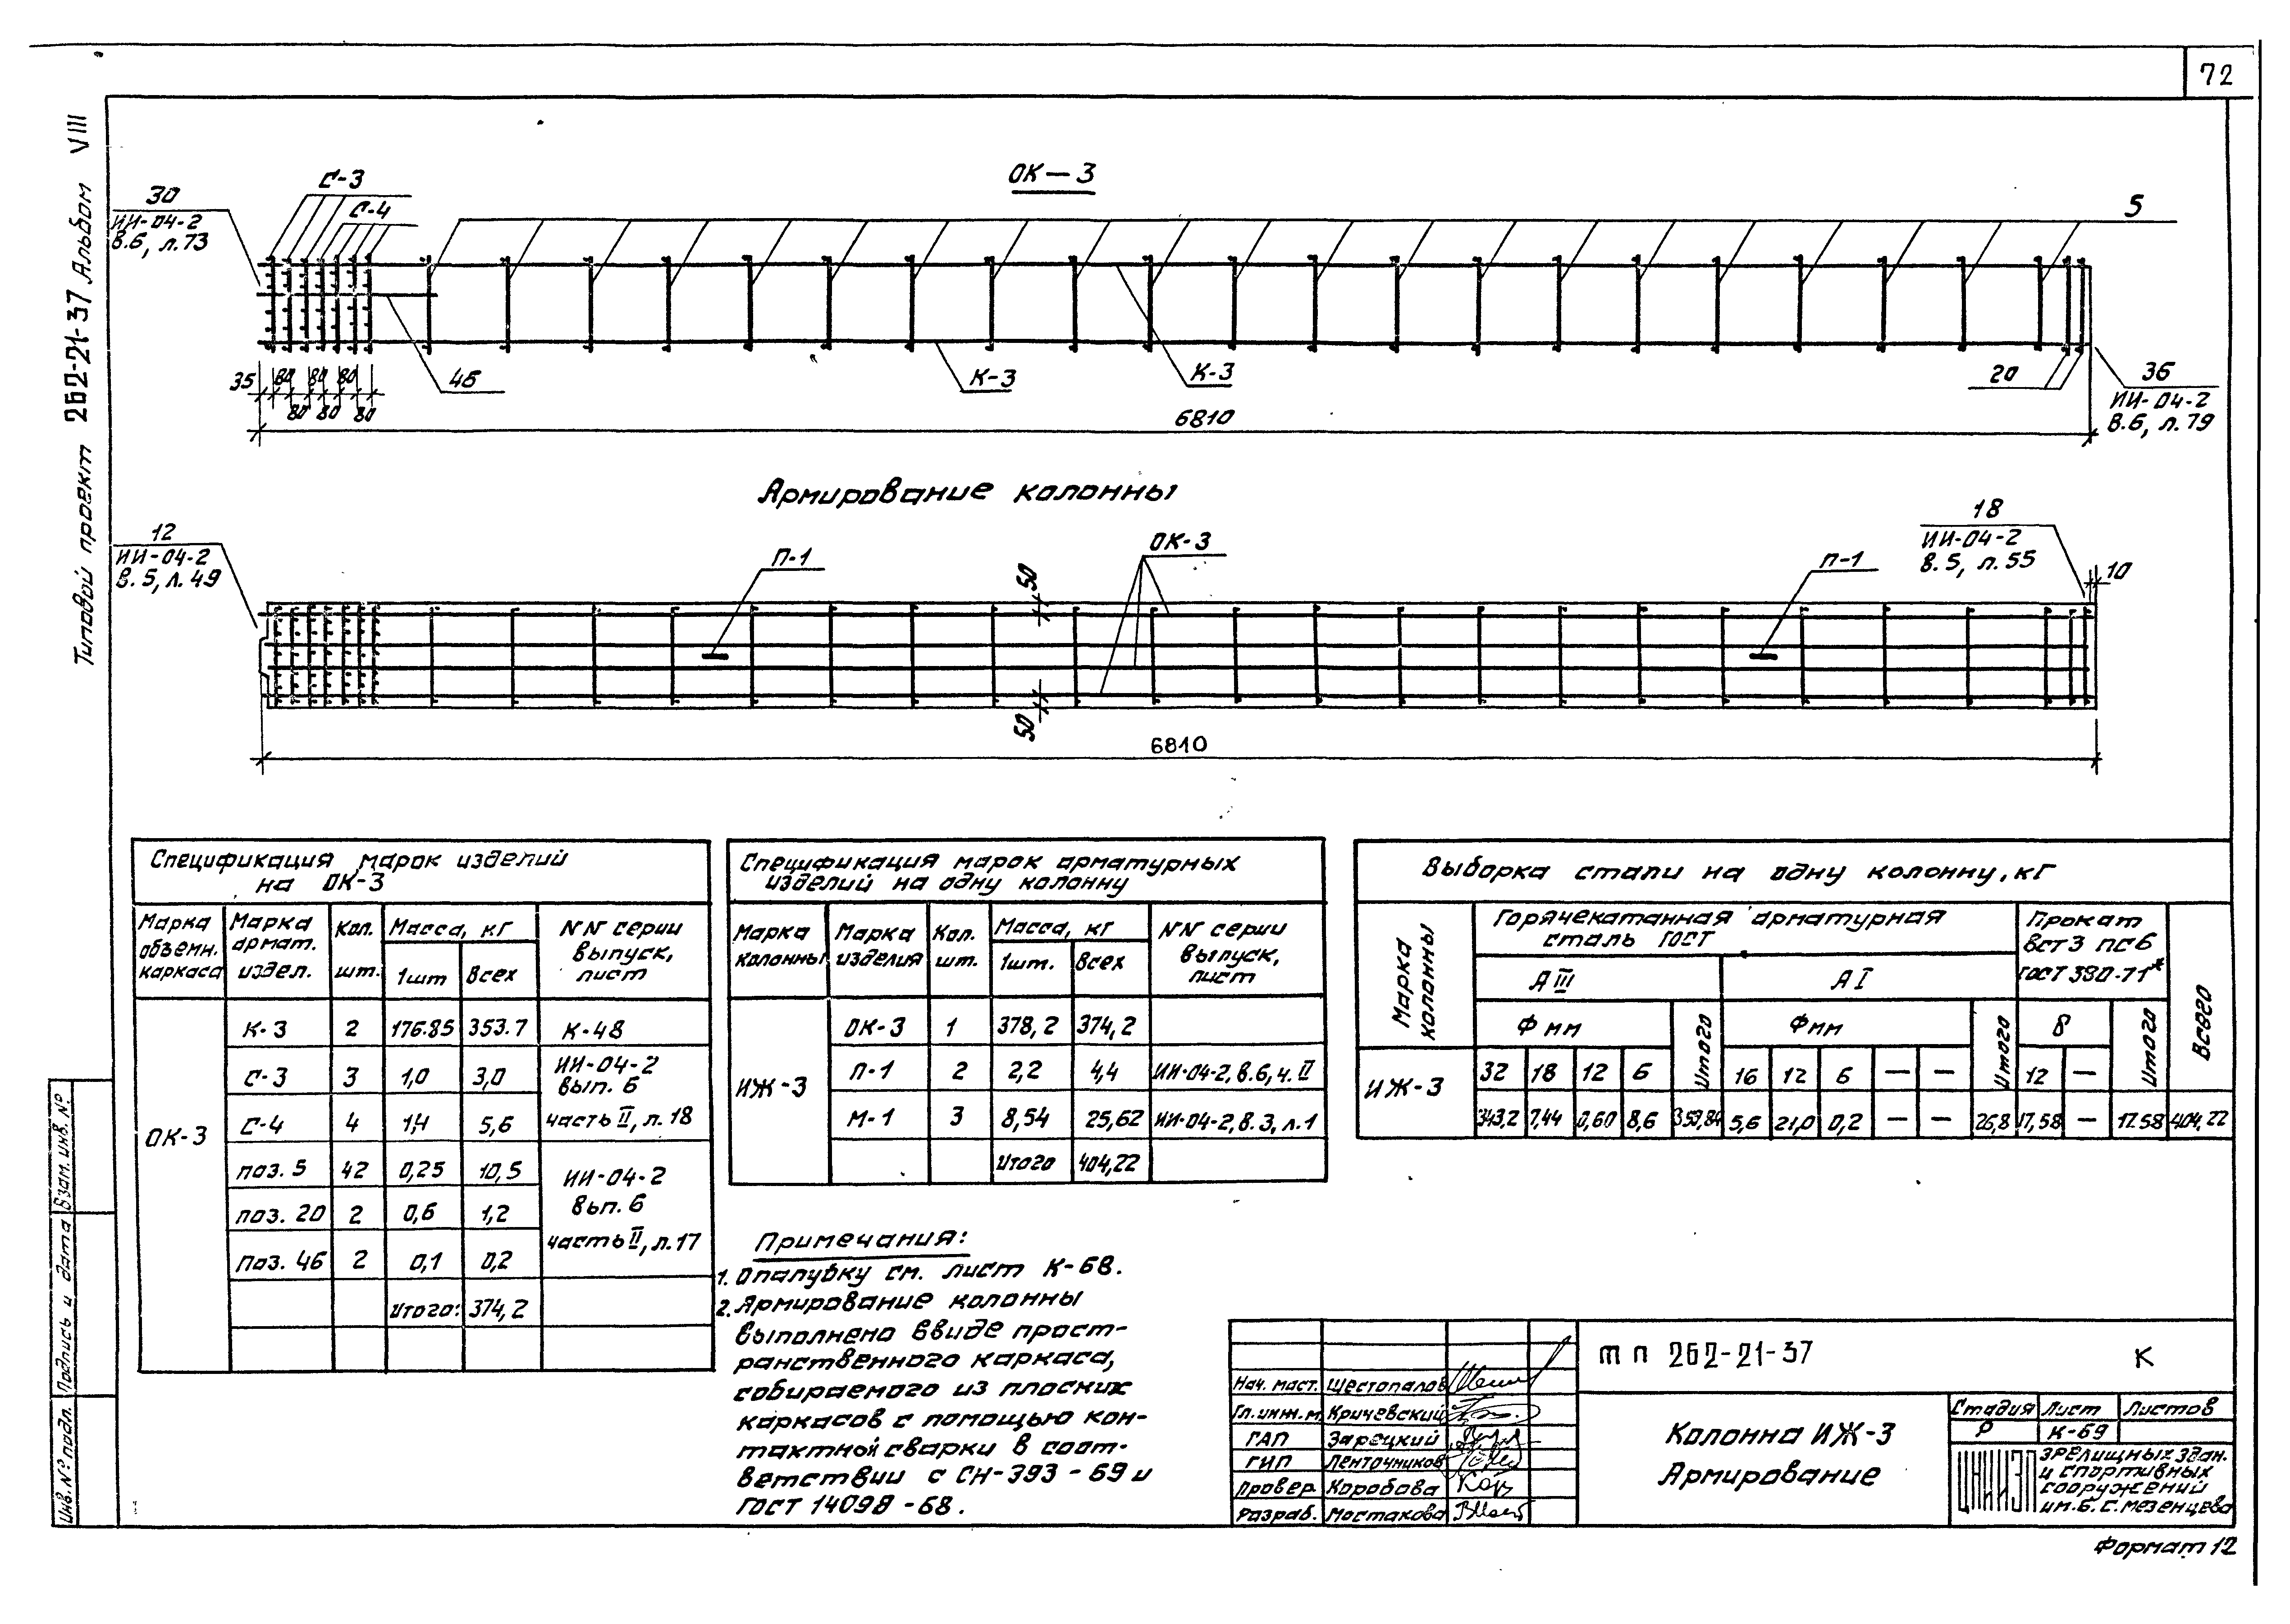 72
Типовой проект 262-21-37 Альбом VIII
ОК-3
30
ИИ-04-2
В.6, л.73
С-3
С-4
5
46
К-3
К-3
20
36
ИИ-04-2
В.6, л.79
35 80 80 80
80 80 80
6810
Армирование колонны
12
ИИ-04-2
В.5, л.49
П-1
ОК-3
П-1
18
ИИ-04-2
В.5, л.55
10
50
50
6810
Спецификация марок изделий
на ОК-3
Марка объемн. каркаса | Марка армат. издел. | Кол. шт. | Масса, кг | NN серии выпуск, лист
1шт | Всех
ОК-3
К-3 | 2 | 176.85 | 353.7 | К-48
С-3 | 3 | 1,0 | 3,0 | ИИ-04-2 вып. 6
С-4 | 4 | 1,4 | 5,6 | часть II, л.18
поз. 5 | 42 | 0,25 | 10,5 | ИИ-04-2
поз. 20 | 2 | 0,6 | 1,2 | вып. 6
поз. 46 | 2 | 0,1 | 0,2 | часть II, л.17
Итого: 374,2
Спецификация марок арматурных
изделий на одну колонну
Марка колонны | Марка изделия | Кол. шт. | Масса, кг | NN серии выпуск, лист
1шт. | Всех
ИЖ-3
ОК-3 | 1 | 378,2 | 374,2
П-1 | 2 | 2,2 | 4,4 | ИИ-04-2, в.6, ч. II
М-1 | 3 | 8,54 | 25,62 | ИИ-04-2, в.3, л.1
Итого 404,22
Выборка стали на одну колонну, кг
Марка колонны | Горячекатанная арматурная сталь ГОСТ | Прокат ВСт3 пс6 ГОСТ 380-71* | Всего
А III | А I
Ф мм | Итого | Ф мм | Итого | δ | Итого
ИЖ-3 | 32 | 18 | 12 | 6 | 16 | 12 | 6 | — | — | 12 | —
343,2 | 7,44 | 0,60 | 8,6 | 359,84 | 5,6 | 21,0 | 0,2 | — | — | 26,8 | 17,58 | — | 17.58 | 404,22
Примечания:
1. Опалубку см. лист К-68.
2. Армирование колонны
выполнено ввиде прост-
ранственного каркаса,
собираемого из плоских
каркасов с помощью кон-
тактной сварки в соот-
ветствии с СН-393-69 и
ГОСТ 14098-68.
Инв. № подл. Подпись и дата Взам. инв. №
Нач. маст. Щестопалов
Гл. инж. м. Кричевский
ГАП Зарецкий
ГИП Ленточников
Провер. Коробова
Разраб. Мостакова
тп 262-21-37 К
Колонна ИЖ-3
Армирование
Стадия Лист Листов
Р К-69
ЗРЕЛИЩНЫХ ЗДАН.
И СПОРТИВНЫХ
СООРУЖЕНИЙ
ИМ. Б. С. МЕЗЕНЦЕВА
Формат 12